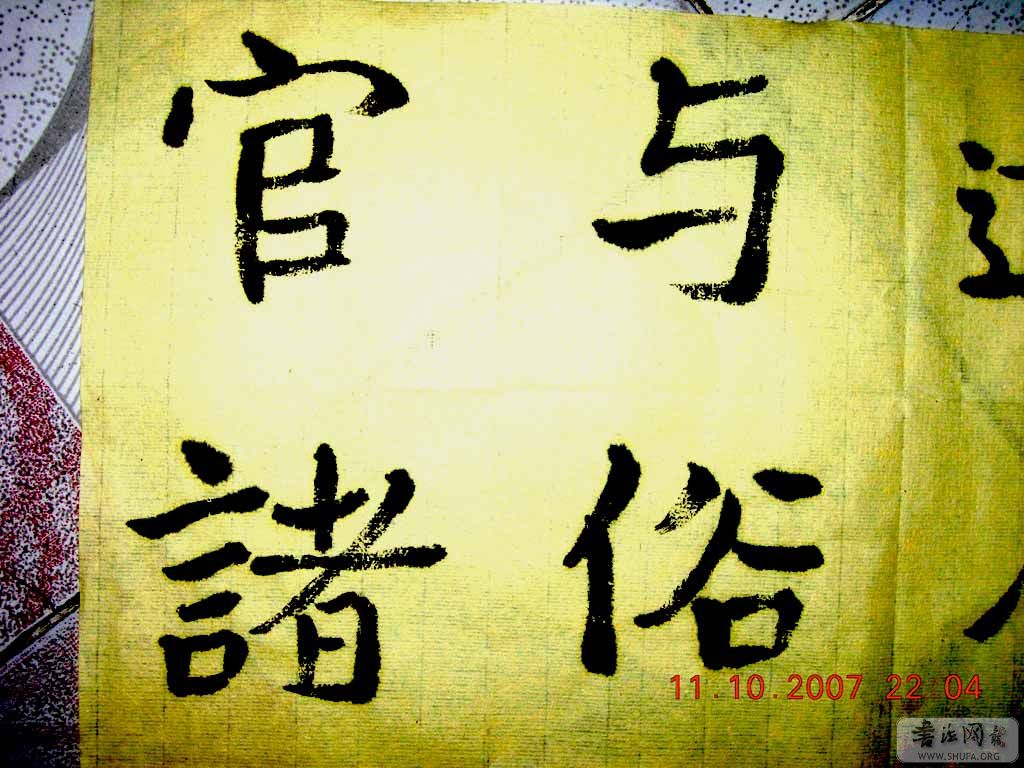 与俗
官諸
11.10.2007 22:04
書法网
WWW.SHUFA.ORG